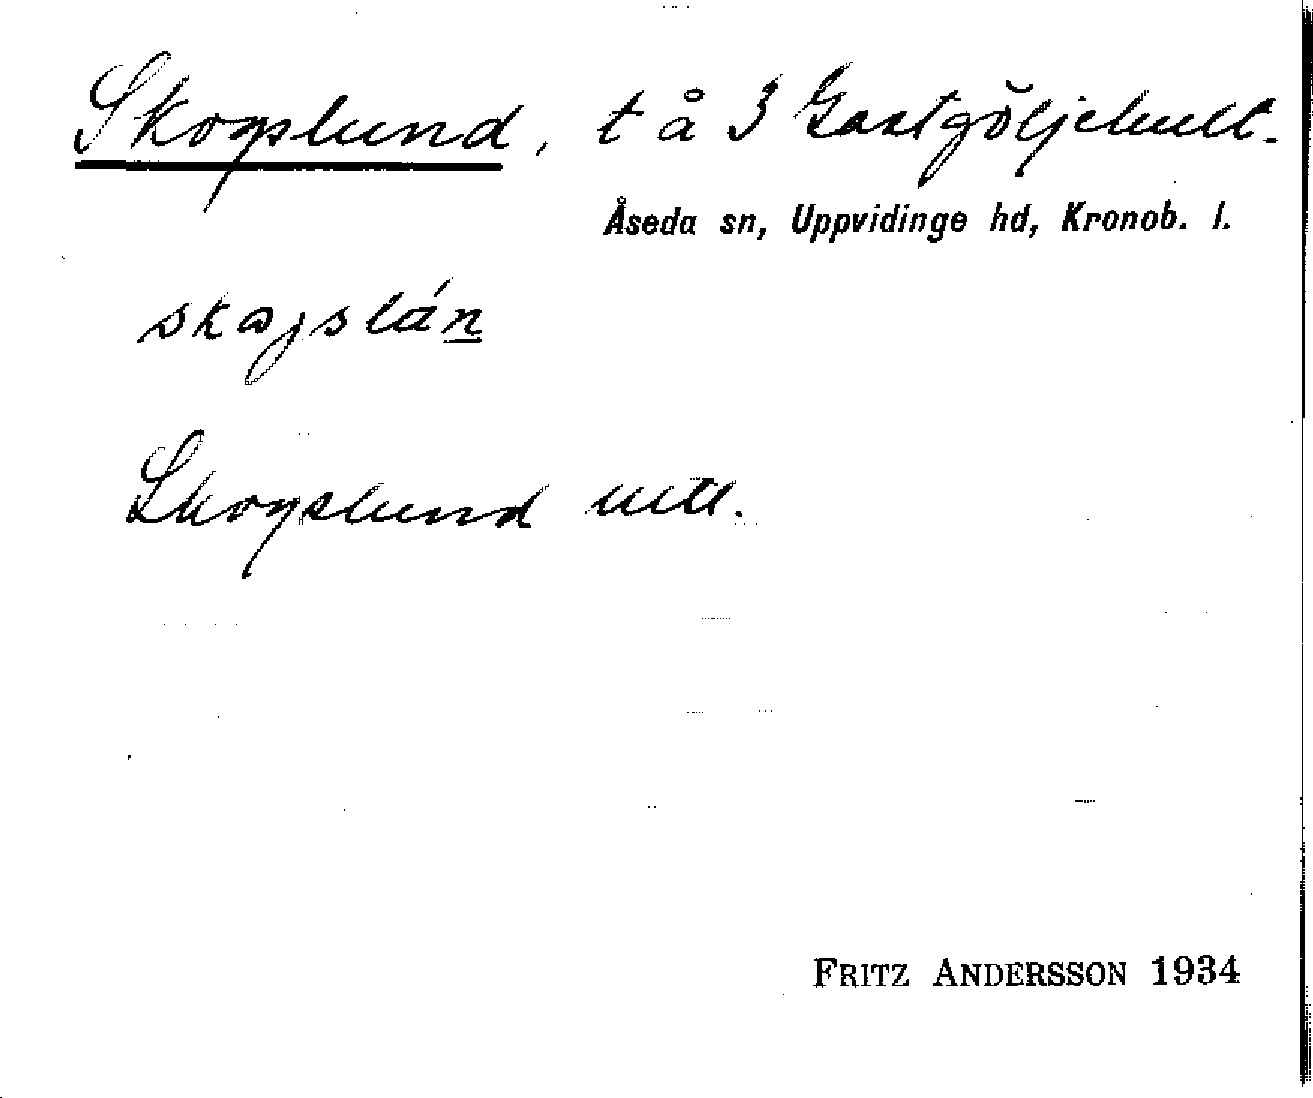 Skogslund, t å 3 Gastgöljehult.
Åseda sn, Uppvidinge hd, Kronob. l.
skogslán
Skogslund utt.
FRITZ ANDERSSON 1934